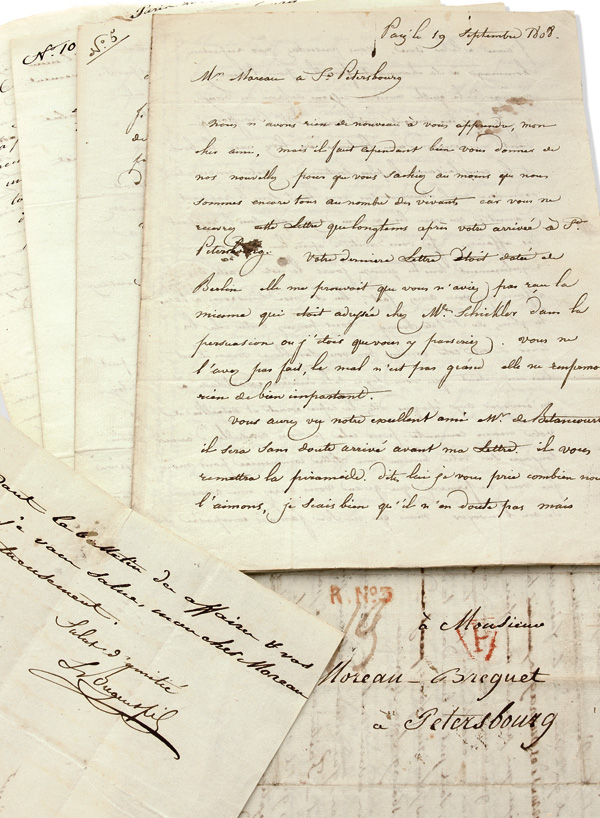 N.º 10
N.º 5
le 19 Septembre 1808.
Mr. Moreau à St. Petersbourg
Nous n'avons rien de nouveau à vous apprendre, mon
cher ami, mais il faut cependant bien vous donner de
nos nouvelles pour que vous sachiez au moins que nous
sommes encore tous au nombre des vivants car vous ne
recevrez cette Lettre que longtems après votre arrivée à St.
Petersbourg. Votre derniere Lettre étoit datée de
Berlin elle me prouvoit que vous n'aviez pas reçu la
mienne qui étoit adressée chez Mr. Schickler dans la
persuasion ou j'étois que vous y passeriez. vous ne
l'avez pas fait, le mal n'est pas grand elle ne
rien de bien important.
Vous aurez vu notre excellent ami Mr. de Betancourt
il sera sans doute arrivé avant ma Lettre. il vous
remettra la piramide. dites lui je vous prie combien nou
l'aimons, je sais bien qu'il n'en doute pas mais
affaires & vos
je vous salue, mon cher Moreau
Salut d'amitié
R. Nº 3
à Monsieur
Moreau-Breguet
à Petersbourg